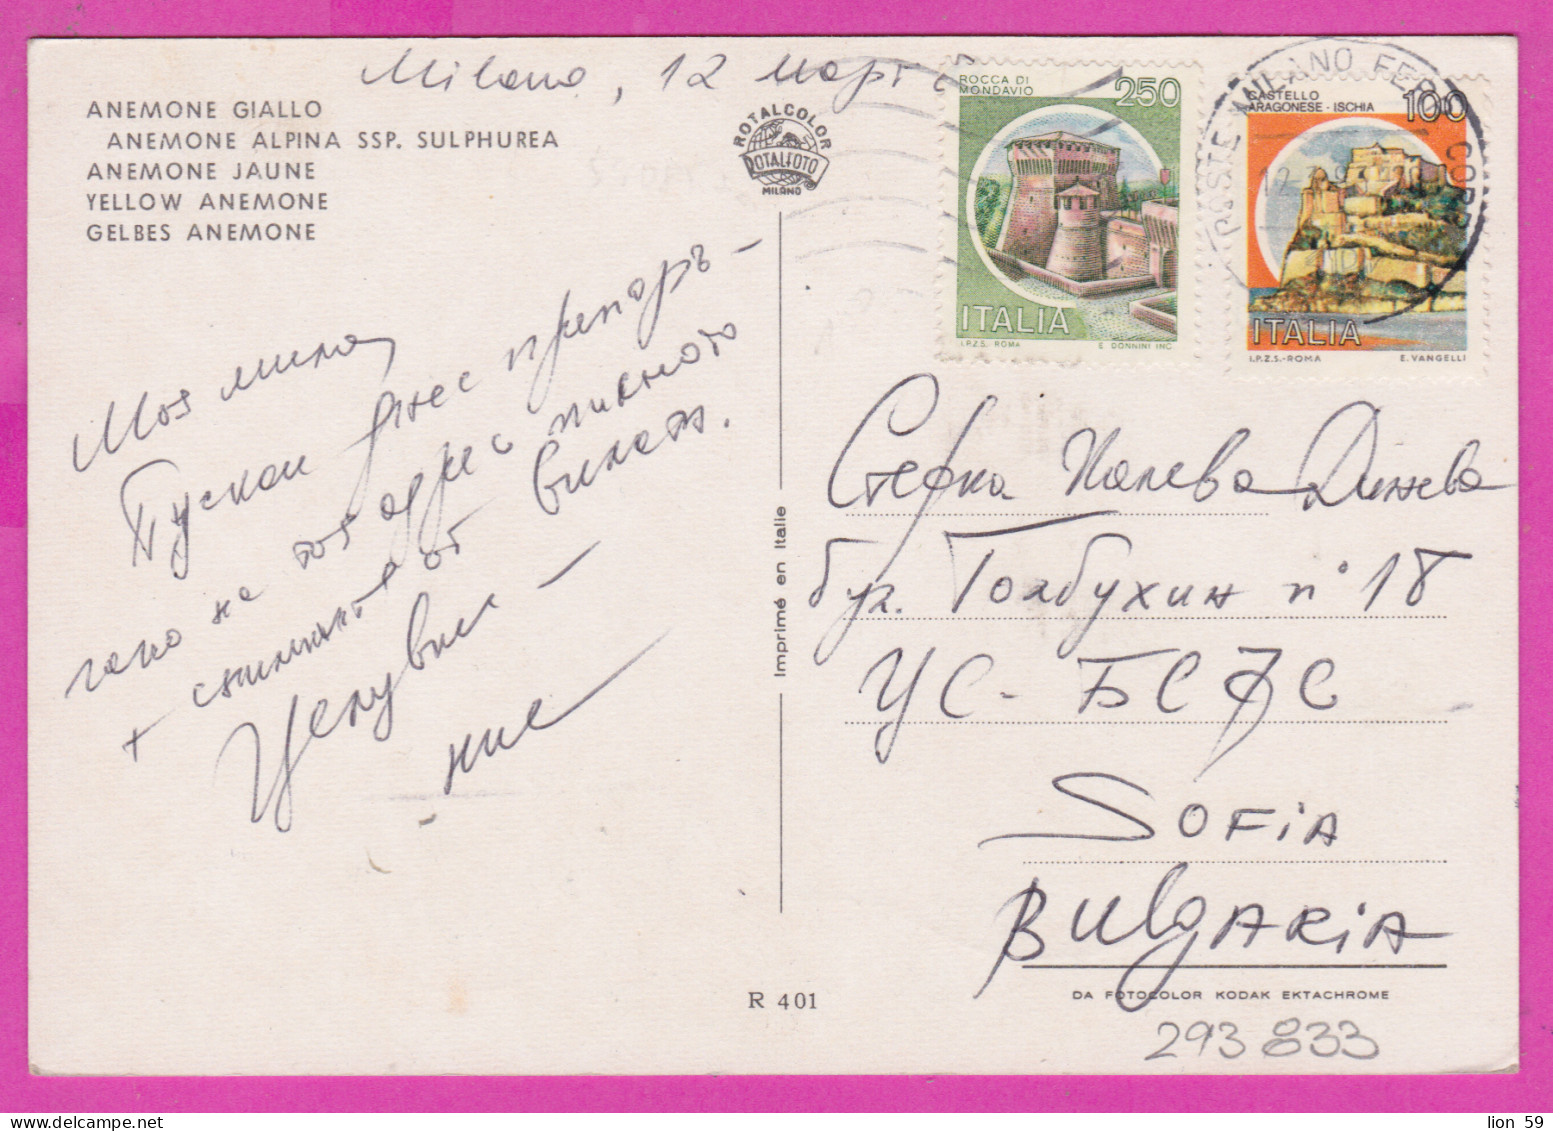 Milano, 12 март
ANEMONE GIALLO
ANEMONE ALPINA SSP. SULPHUREA
ANEMONE JAUNE
YELLOW ANEMONE
GELBES ANEMONE
ROTALCOLOR
ROTALFOTO
MILANO
ROCCA DI
MONDAVIO
250
ITALIA
I.P.Z.S. ROMA E. DONNINI INC.
CASTELLO
ARAGONESE - ISCHIA
100
ITALIA
I.P.Z.S.-ROMA E. VANGELLI
POSTE MILANO FERR. CORR.
Моя мила,
Пускам днес препоръ-
чано на тоя адрес писмото
+ снимките от вилата.
Целувки -
ние
Imprimé en Italie
Стефка Палева Динева
бул. Толбухин n° 18
УС - БСФС
SOFIA
BULGARIA
R 401
DA FOTOCOLOR KODAK EKTACHROME
293 833
lion 59